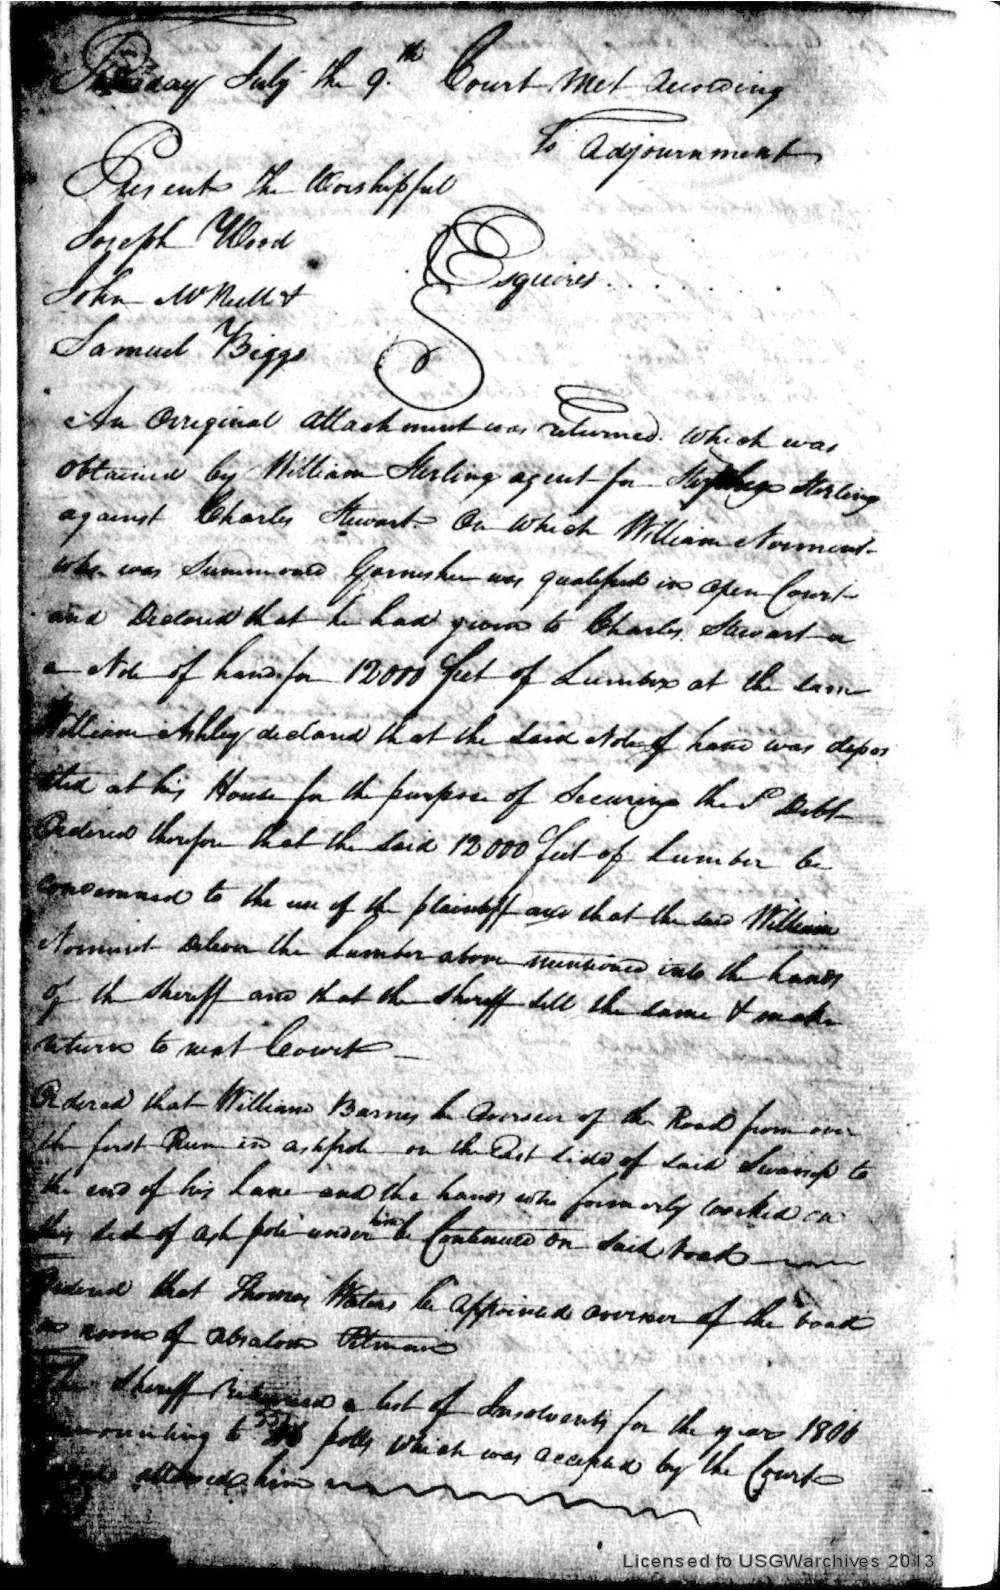 July the 9.th Court Met According
To Adjournment
Present the Worshipful
Joseph Wood
John McNeill &
Samuel Biggs
Esquires
An Orriginal attachment was returned. which was
obtained by William Sterling agent for Sterling
against Charles Stewart On which William Norment
who was Summoned Garnishee was qualifed in open Court
and Declared that he had given to Charles Stewart a
a Note of hand for 12000 feet of Lumber at the same
William Ashley declared that the said Note of hand was depos
ited at his House for the purpose of Securing the Sd Debt
Ordered therefore that the said 12000 feet of Lumber be
condemned to the use of the plaintiff and that the said William
Norment Deliver the Lumber above mentioned into the hands
of the Sheriff and that the Sheriff sell the same & make
return to next Court
Ordered that William Barnes be Overseer of the Road from over
the first Run in ashpole on the East side of said Swamp to
the end of his Lane and the hands who formerly worked on
this side of ash pole under him be Continued on said road
Ordered that Thomas Waters be appointed overseer of the road
in room of Absalom Pitman
The Sheriff Returned a list of Insolvents for the year 1806
amounting to 55 polls which was accepted by the Court
allowed him
Licensed to USGWarchives 2013